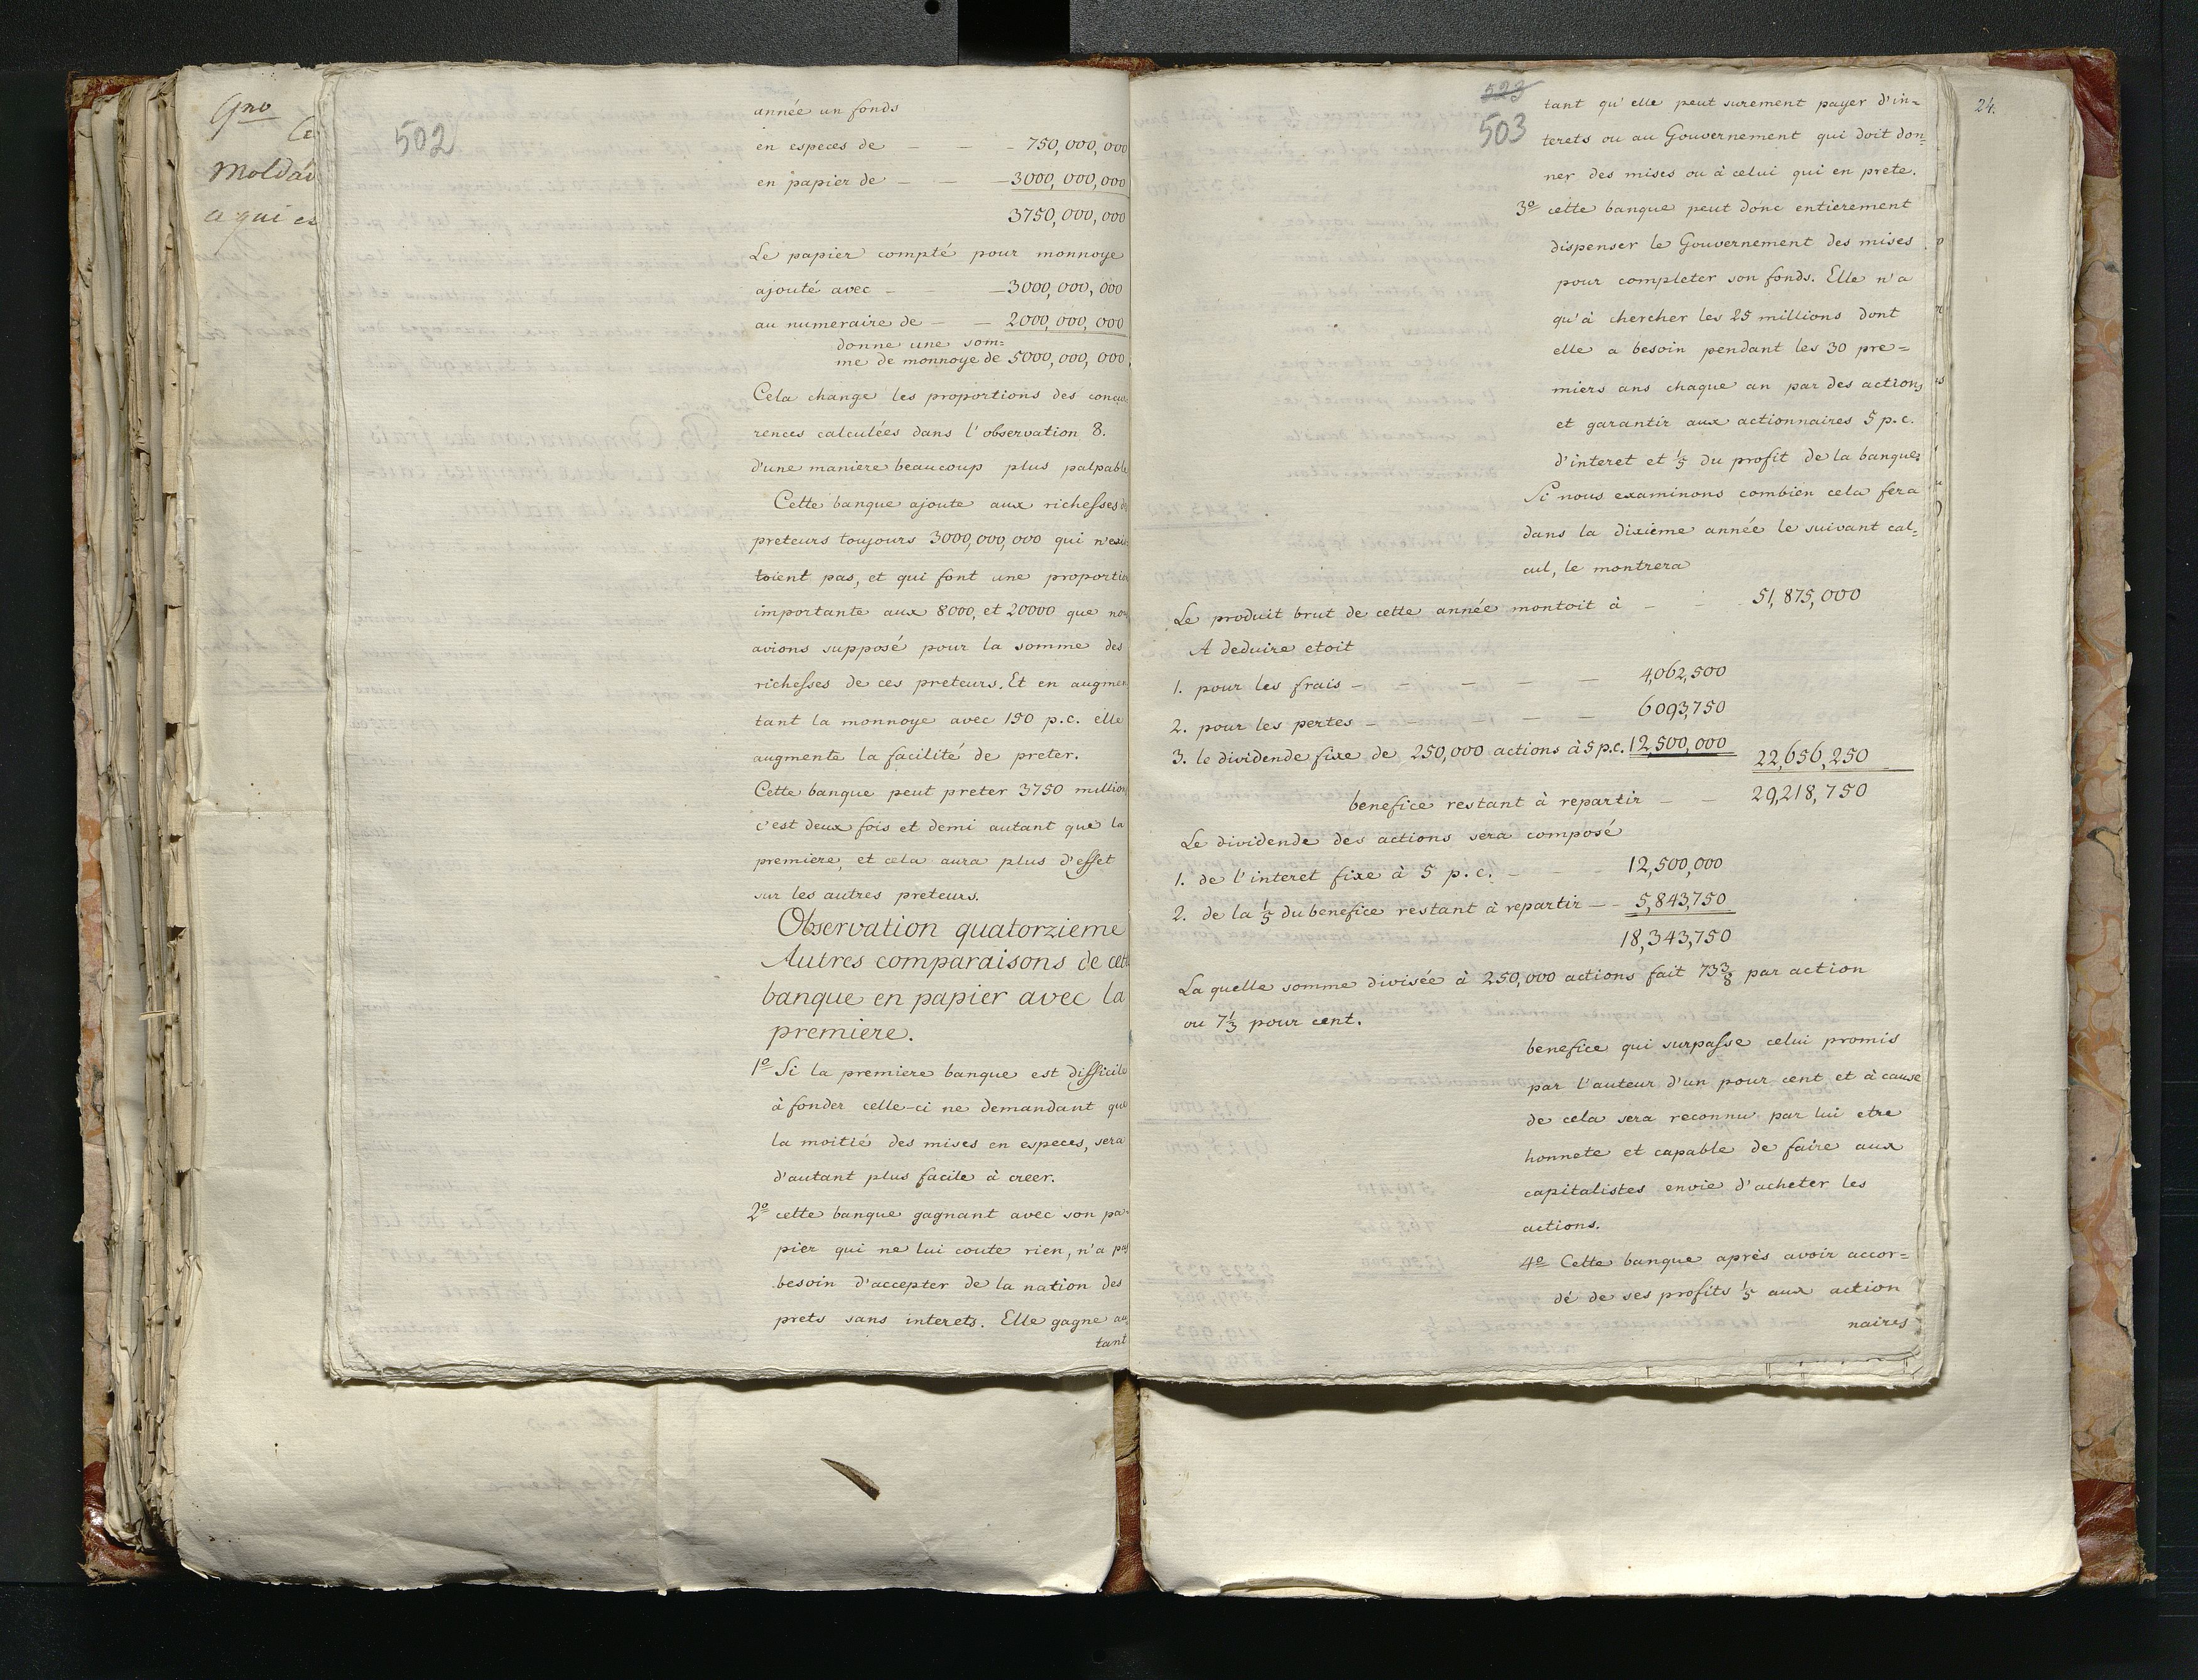 502
année un fonds
en especes de – – – 750,000,000
en papier de – – – 3000,000,000
3750,000,000
Le papier compté pour monnoye
ajouté avec – – 3000,000,000
au numeraire de – – 2000,000,000
donne une som=
me de monnoye de 5000,000,000.
Cela change les proportions des concur
rences calculées dans l'observation 8.
d'une maniere beaucoup plus palpable
Cette banque ajoute aux richesses de
preteurs toujours 3000,000,000 qui n'exis
toient pas, et qui font une proportion
importante aux 8000, et 20000 que nou
avions supposé pour la somme des
richesses de ces preteurs. Et en augmen
tant la monnoye avec 150 p.c. elle
augmente la facilité de preter.
Cette banque peut preter 3750 million
c'est deux fois et demi autant que la
premiere, et cela aura plus d'effet
sur les autres preteurs.
Observation quatorzieme
Autres comparaisons de cett
banque en papier avec la
premiere.
1º Si la premiere banque est difficile
à fonder celle-ci ne demandant que
la moitié des mises en especes, sera
d'autant plus facile à creer.
2º cette banque gagnant avec son pa=
pier qui ne lui coute rien, n'a pas
besoin d'accepter de la nation des
prets sans interets. Elle gagne au=
tant
Gno
Ce
Moldav
a qui es
523
503
tant qu'elle peut surement payer d'in=
terets ou au Gouvernement qui doit don=
ner des mises ou à celui qui en prete.
3º cette banque peut donc entierement
dispenser le Gouvernement des mises
pour completer son fonds. Elle n'a
qu'à chercher les 25 millions dont
elle a besoin pendant les 30 pre=
miers ans chaque an par des actions
et garantir aux actionnaires 5 p.c.
d'interet et 1/5 du profit de la banque.
Si nous examinons combien cela fera
dans la dixieme année le suivant cal=
cul, le montrera
Le produit brut de cette année montoit à – – 51,875,000
A deduire etoit
1. pour les frais – – – – – 4,062,500
2. pour les pertes – – – – – 6093,750
3. le dividende fixe de 250,000 actions à 5 p.c. 12,500,000 22,656,250
benefice restant à repartir – – 29,218,750
Le dividende des actions sera composé
1. de l'interet fixe à 5 p.c. – – – 12,500,000
2. de la 1/5 du benefice restant à repartir – – 5,843,750
18,343,750
La quelle somme divisée à 250,000 actions fait 73 3/8 par action
ou 7 1/3 pour cent.
benefice qui surpasse celui promis
par l'auteur d'un pour cent et à cause
de cela sera reconnu par lui etre
honnete et capable de faire aux
capitalistes envie d'acheter les
actions.
4º Cette banque après avoir accor=
dé de ses profits 1/5 aux action
naires
24.